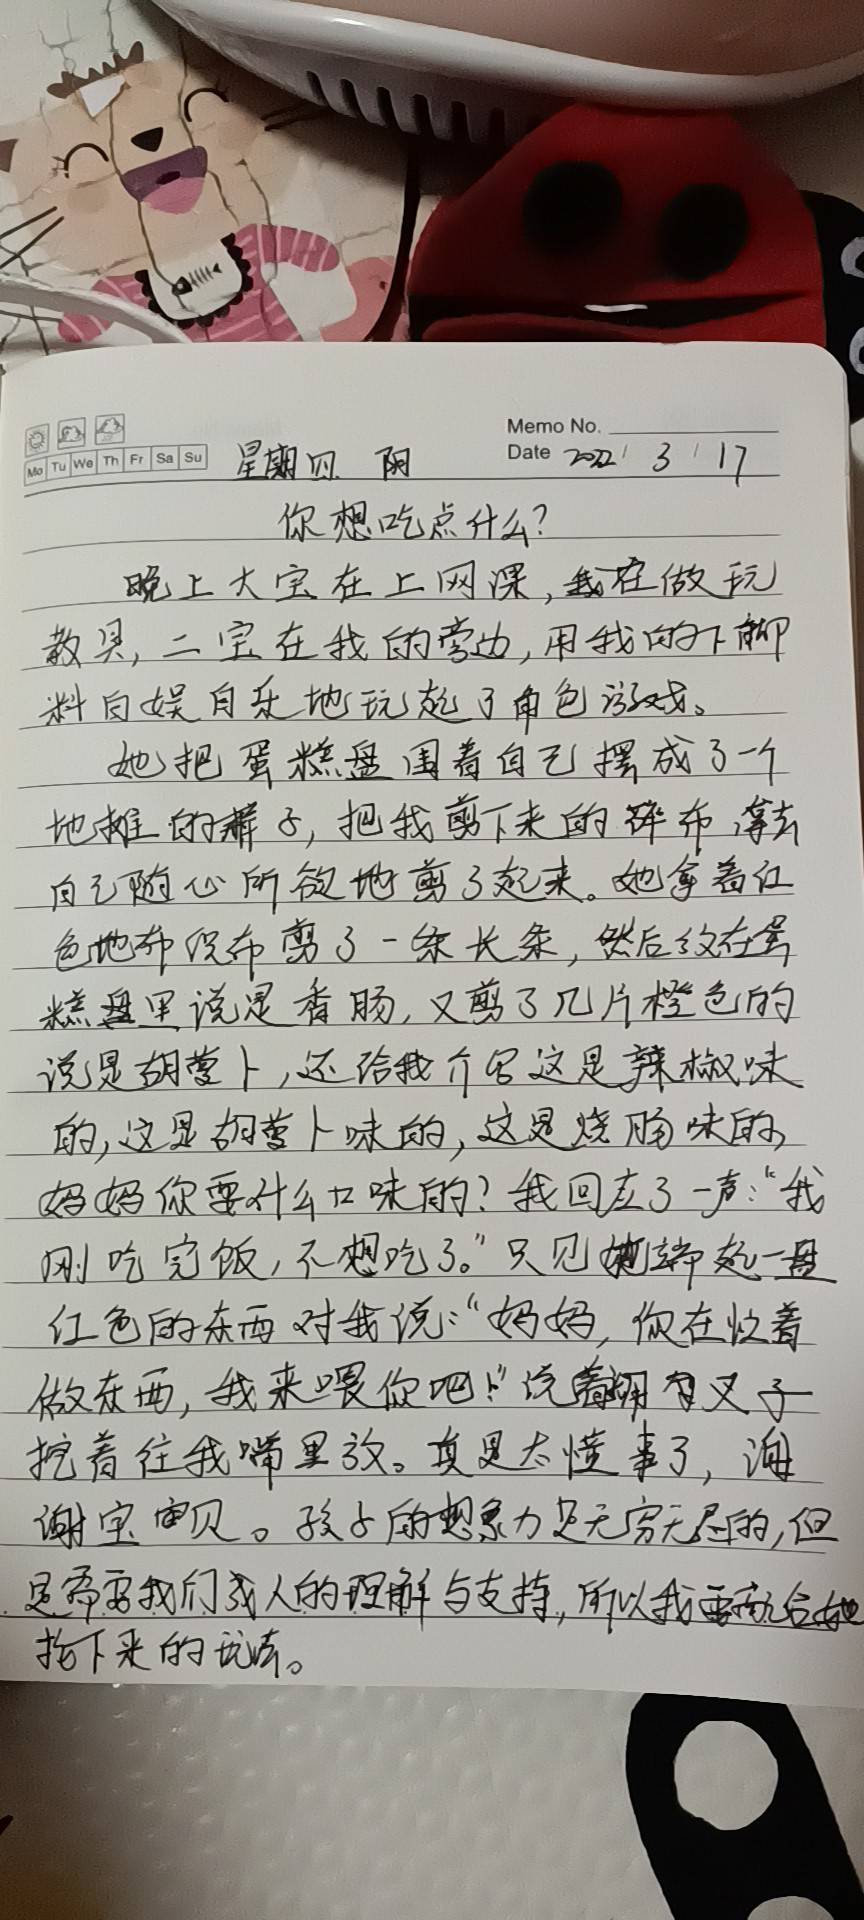 Memo No.
Mo Tu We Th Fr Sa Su 星期四 阴 Date 2022 / 3 / 17
你想吃点什么?
晚上大宝在上网课,我在做玩
教具,二宝在我的旁边,用我的下脚
料自娱自乐地玩起了角色游戏。
她把蛋糕盘围着自己摆成了一个
地摊的样子,把我剪下来的碎布拿去
自己随心所欲地剪了起来。她拿着红
色地布织布剪了一条长条,然后放在蛋
糕盘里说是香肠,又剪了几片橙色的
说是胡萝卜,还给我介绍这是辣椒味
的,这是胡萝卜味的,这是烧肠味的,
妈妈你要什么口味的?我回应了一声:“我
刚吃完饭,不想吃了。”只见她端起一盘
红色的东西对我说:“妈妈,你在忙着
做东西,我来喂你吧!”说着用叉子
挖着往我嘴里放。真是太懂事了,谢
谢宝贝。孩子的想象力是无穷无尽的,但
是需要我们成人的理解与支持,所以我要配合她
接下来的玩法。